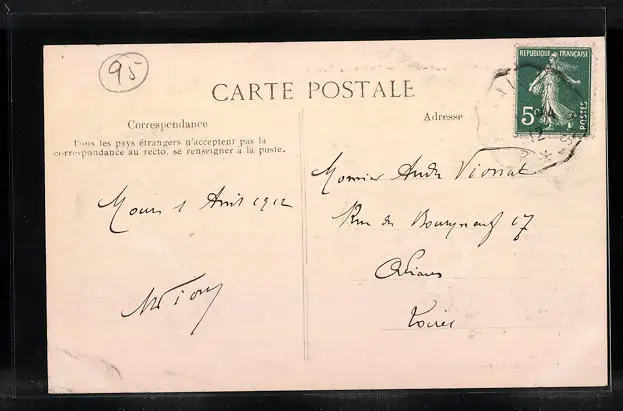 95
CARTE POSTALE
REPUBLIQUE FRANÇAISE
5c
POSTES
Correspondance
Adresse
Tous les pays étrangers n'acceptent pas la
correspondance au recto, se renseigner à la poste.
Monsieur André
Rue de Bourgneuf 17
Orléans
Loiret
1 Avril 1912